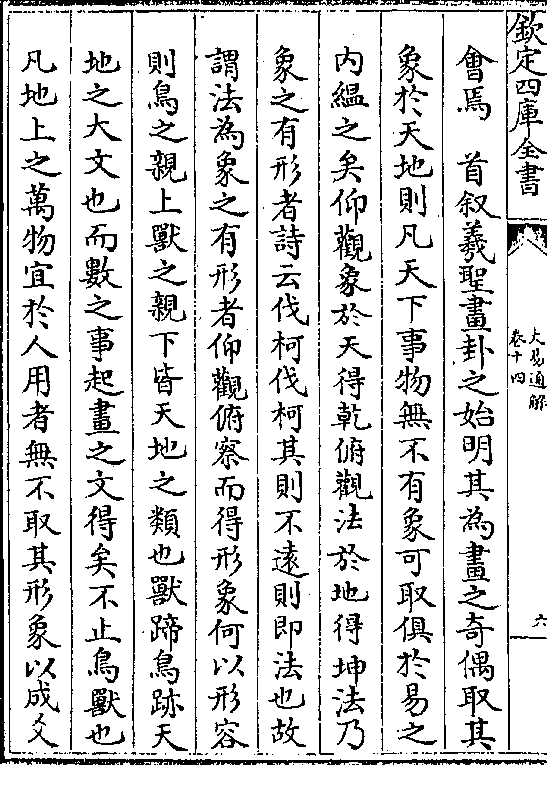 欽定四庫全書
大易通解
卷十四
六
會焉　首叙羲聖畫卦之始明其為畫之奇偶取其
象於天地則凡天下事物無不有象可取俱於易之
内緼之矣仰觀象於天得乾俯觀法於地得坤法乃
象之有形者詩云伐柯伐柯其則不遠則即法也故
謂法為象之有形者仰觀俯察而得形象何以形容
則鳥之親上獸之親下皆天地之類也獸蹄鳥跡天
地之大文也而數之事起畫之文得矣不止鳥獸也
凡地上之萬物宜於人用者無不取其形象以成爻